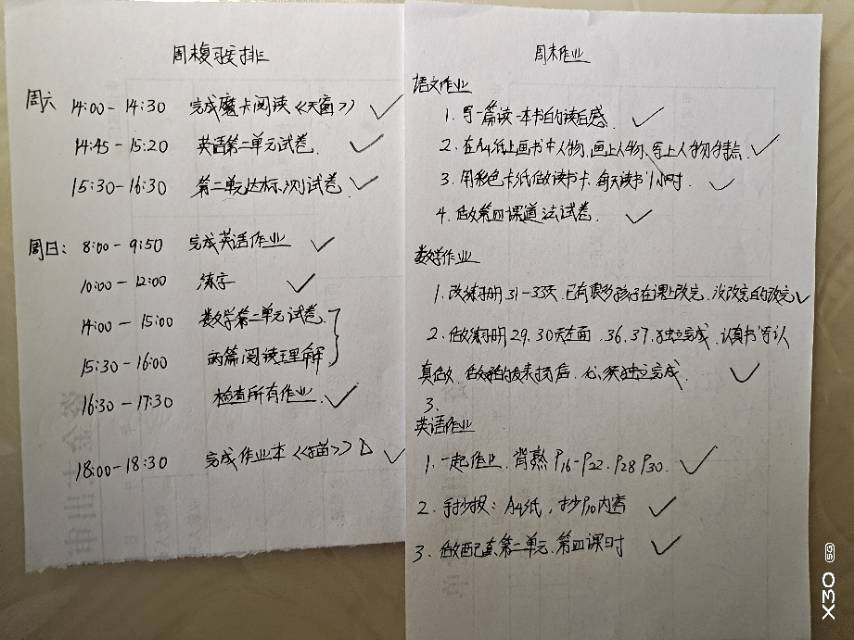 周末复习安排
周六 14:00-14:30 完成魔卡阅读《天窗》
14:45-15:20 英语第二单元试卷.
15:30-16:30 第二单元达标测试卷
周日: 8:00-9:50 完成英语作业
10:00-12:00 练字
14:00-15:00 数学第二单元试卷.
15:30-16:00 两篇阅读理解
16:30-17:30 检查所有作业.
18:00-18:30 完成作业本《猫》
周末作业
语文作业
1. 写一篇读一本书的读后感.
2. 在A4纸上画书中人物,画上人物,写上人物特点.
3. 用彩色卡纸做读书卡.每天读书1小时.
4. 做第四课道法试卷.
数学作业
1. 改练习册31-33页.已有很多孩子在课上改完.没改完的改完
2. 做练习册29.30页左面.36.37.独立完成.认真书写认
真做. 必须独立完成.
3.
英语作业
1. 一起作业.背熟P16-P22.P28 P30.
2. 手抄报:A4纸,抄P10内容
3. 做配套第二单元.第四课时
X30 5G